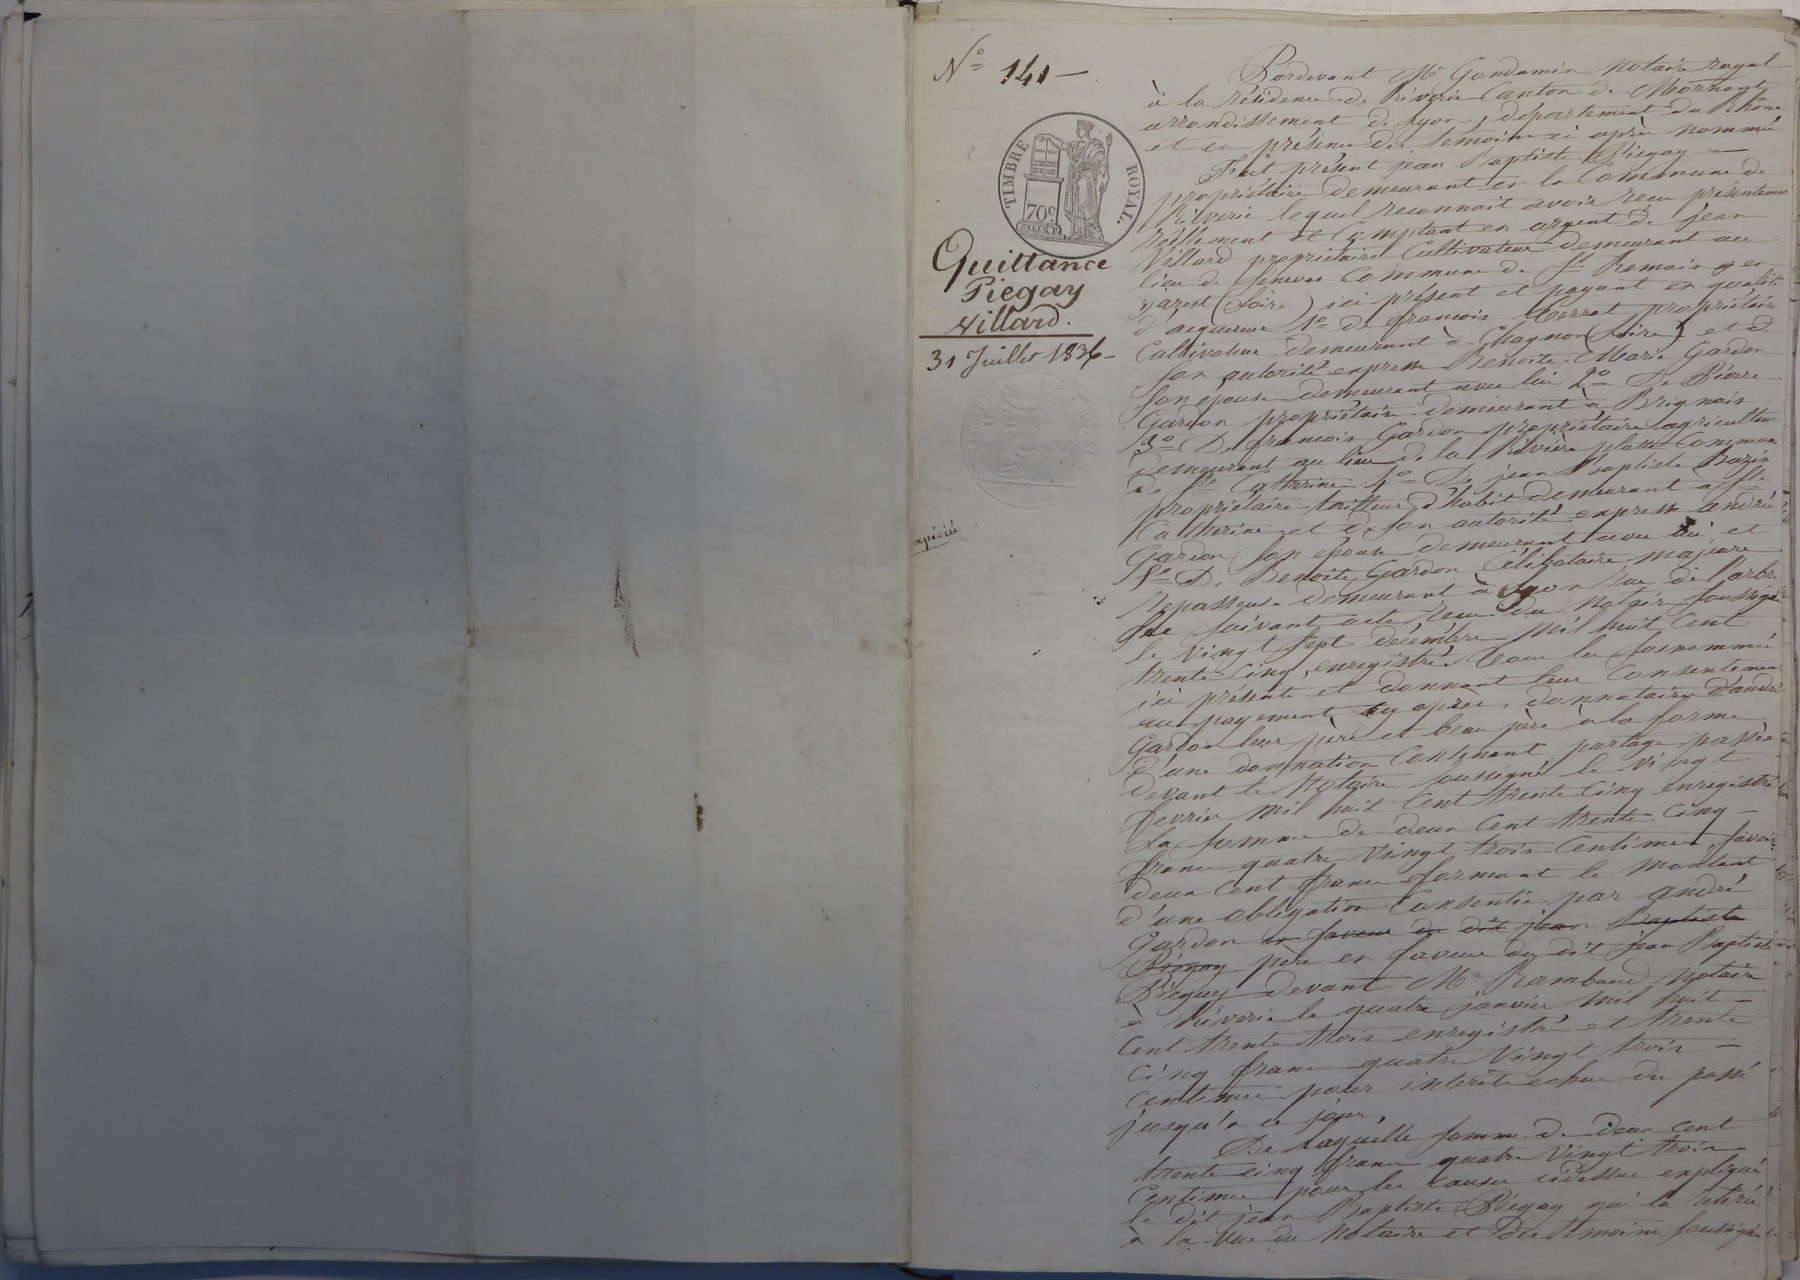 N° 141
TIMBRE ROYAL
70c
Quittance
Piegay
Villard.
31 Juillet 1836
expédiée
Pardevant Me Gondamin Notaire royal
à la résidence de Riverie Canton de Mornant
arrondissement de Lyon, département du Rhône
et en présence des temoins ci après nommés
Fut présent jean Baptiste Piegay
propriétaire demeurant en la Commune de
Riverie lequel reconnait avoir recu présentement
réellement et Comptant en argent de jean
Villard propriétaire Cultivateur demeurant au
lieu de Commune de St Romain en
jarest (Loire) ici présent et payant en qualité
d'acquereur 1° de francois propriétaire
Cultivateur demeurant à Chagnon (Loire) et de
son autorité expresse Benoite Marie Gardon
son épouse demeurant avec lui 2° De Pierre
Gardon propriétaire demeurant à Brignais
3° De francois Gardon propriétaire agriculteur
demeurant au lieu de la Rivière platte Commune
de Ste Catherine 4° De jean Baptiste Bazin
propriétaire tailleur d'habit demeurant à Ste
Catherine et de son autorité expresse andrée
Gardon son épouse demeurant avec lui et
5° De Benoite Gardon Célibataire majeure
repasseuse demeurant à Lyon rue de l'arbre
sec suivant acte recu du Notaire soussigné
le vingt sept décembre mil huit Cent
trente Cinq, enregistré, tous les susnommés
ici présents et donnant leur Consentement
au payement cy après, donnataires d'andré
Gardon leur père et beau père à la forme
d'une donnation Contenant partage passée
devant le Notaire soussigné le vingt
fevrier mil huit Cent trente Cinq enregistré
La somme de deux Cent trente Cinq
francs quatre vingt trois Centimes, savoir
deux Cent francs formant le montant
d'une obligation Consentie par andré
Gardon en faveur du dit jean Baptiste
Piegay père en faveur du dit jean Baptiste
Piegay devant Me Rambaud Notaire
à Riverie le quatre janvier mil huit
Cent trente trois enregistré et trente
Cinq francs quatre vingt trois
Centimes pour interêts echus du passé
jusqu'à ce jour,
De laquelle somme de deux Cent
trente cinq francs quatre vingt trois
Centimes pour les causes cidessus expliquées
le dit jean Baptiste Piegay qui la retirée
à la vue du Notaire et des témoins soussignés